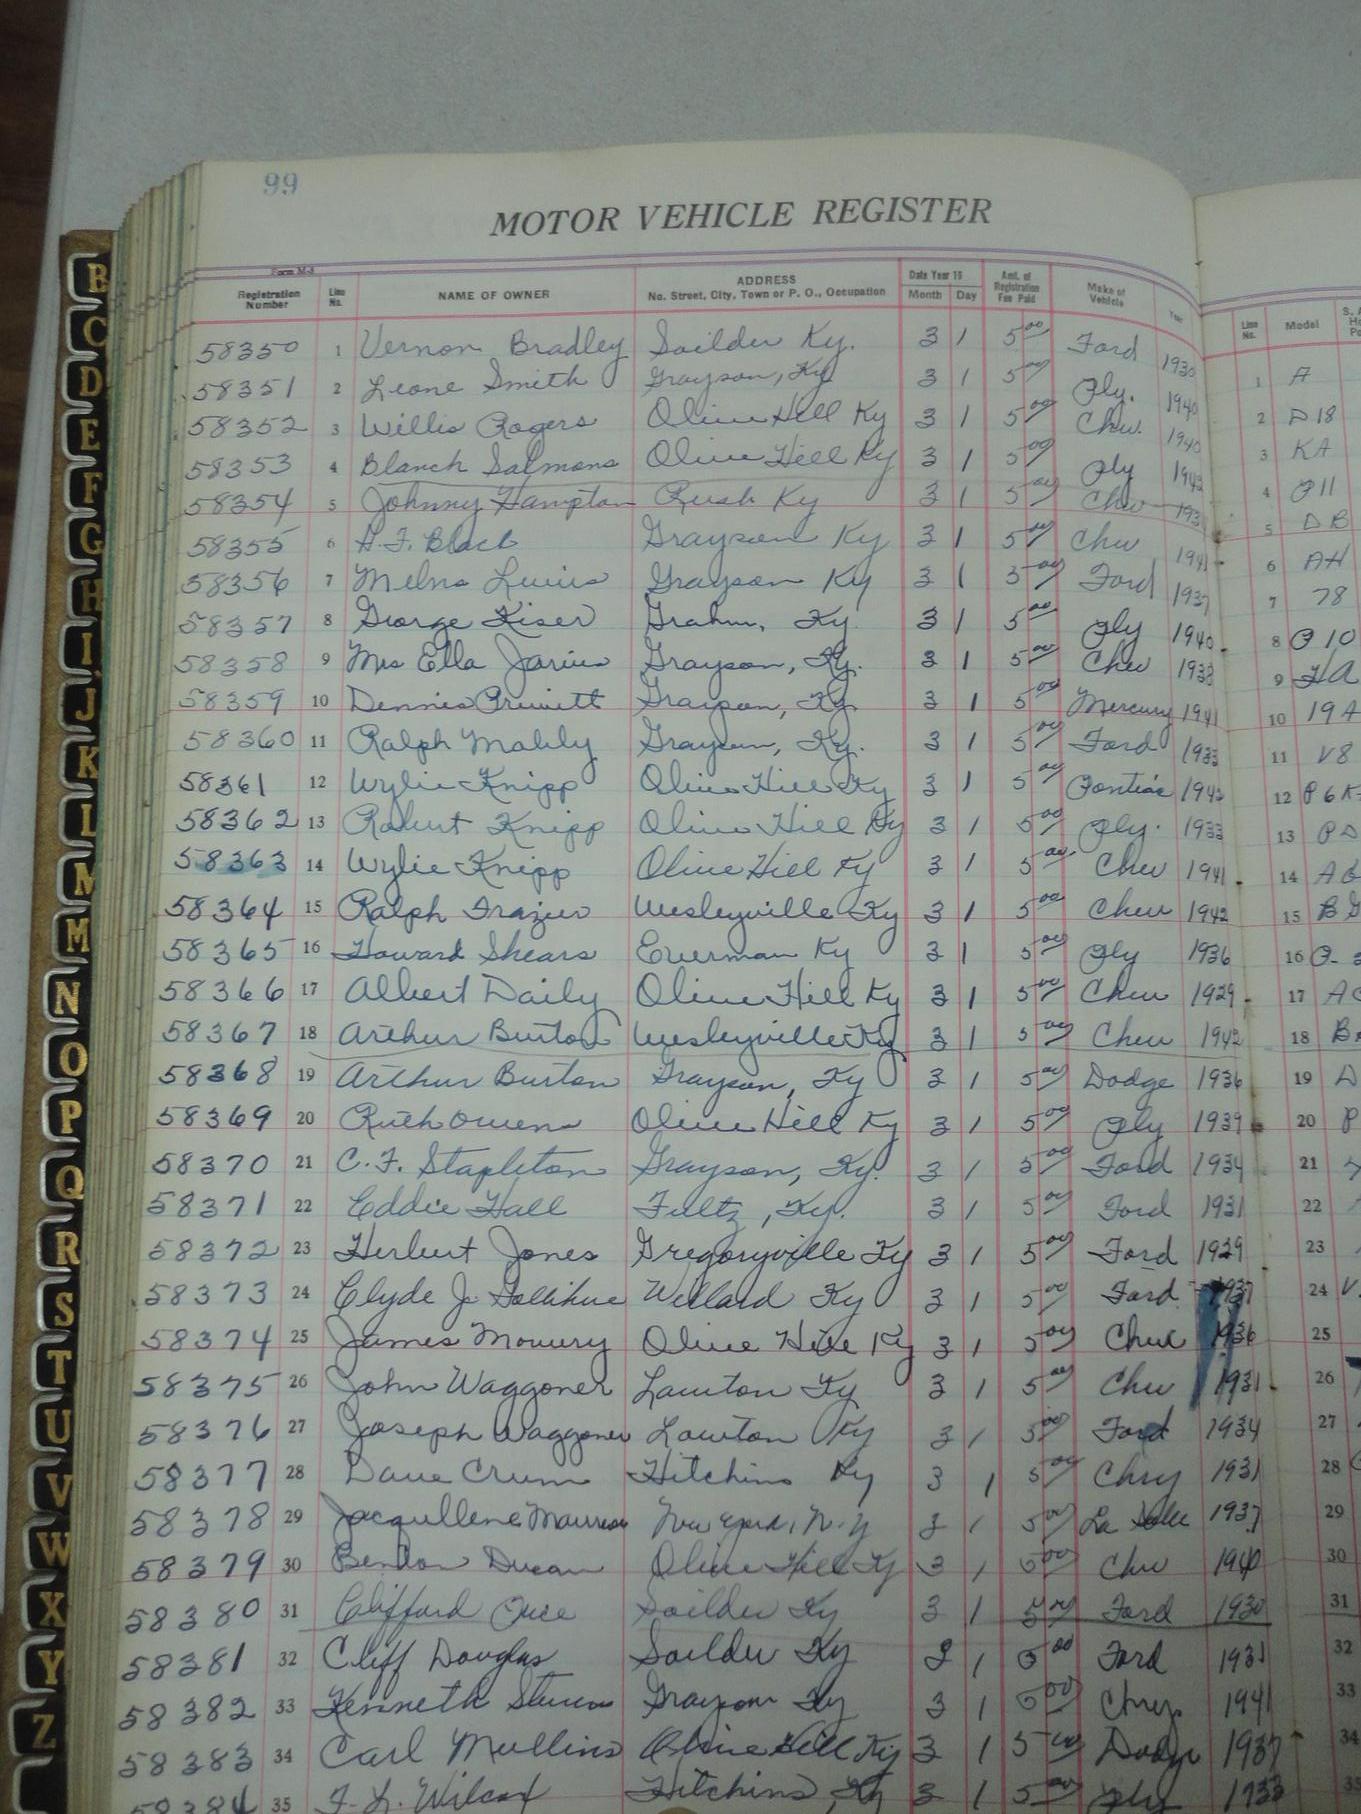 99
MOTOR VEHICLE REGISTER
Form M-3
Registration Number Line No. NAME OF OWNER ADDRESS No. Street, City, Town or P. O., Occupation Date Year 19 Month Day Amt. of Registration Fee Paid Make of Vehicle Year Line No. Model
58350 1 Vernon Bradley Soilder Ky. 3 1 5 00 Ford 1930 1 A
58351 2 Leone Smith Grayson, Ky 3 1 5 00 Ply. 1940 2 D18
58352 3 Willis Rogers Olive Hill Ky 3 1 5 00 Chev. 1940 3 KA
58353 4 Blanch Salmons Olive Hill Ky 3 1 5 00 Ply 1942 4 P11
58354 5 Johnny Hampton Rush Ky 3 1 5 00 Chev 5 DB
58355 6 Black Grayson Ky 3 1 5 00 Chev 1941 6 AH
58356 7 Melna Lewis Grayson Ky 3 1 5 00 Ford 1937 7 78
58357 8 George Kiser Grahn, Ky 3 1 5 00 Ply 1940 8 P10
58358 9 Mrs Ella Grayson, Ky. 3 1 5 00 Chev 1938 9 HA
58359 10 Dennis Pruitt Grayson, Ky. 3 1 5 00 Mercury 1941 10 19A
58360 11 Ralph Grayson, Ky. 3 1 5 00 Ford 1933 11 V8
58361 12 Wylie Knipp Olive Hill Ky 3 1 5 00 Pontiac 1942 12
58362 13 Robert Knipp Olive Hill Ky 3 1 5 00 Ply. 1933 13 PD
58363 14 Wylie Knipp Olive Hill Ky 3 1 5 00 Chev 1941 14
58364 15 Ralph Frazier Wesleyville Ky 3 1 5 00 Chev 1942 15
58365 16 Howard Shears Everman Ky 3 1 5 00 Ply 1936 16
58366 17 Albert Daily Olive Hill Ky 3 1 5 00 Chev 1929 17
58367 18 Arthur Burton Wesleyville Ky 3 1 5 00 Chev 1942 18
58368 19 Arthur Burton Grayson, Ky 3 1 5 00 Dodge 1936 19
58369 20 Ruth Owens Olive Hill Ky 3 1 5 00 Ply 1939 20
58370 21 C. F. Stapleton Grayson, Ky. 3 1 5 00 Ford 1934 21
58371 22 Eddie Hall Fultz, Ky. 3 1 5 00 Ford 1931 22
58372 23 Herbert Jones Gregoryville Ky 3 1 5 00 Ford 1929 23
58373 24 Clyde J. Willard Ky 3 1 5 00 Ford 1937 24 V
58374 25 James Mowery Olive Hill Ky 3 1 5 00 Chev 1936 25
58375 26 John Waggoner Lawton Ky 3 1 5 00 Chev 1931 26
58376 27 Joseph Waggoner Lawton Ky 3 1 5 00 Ford 1934 27
58377 28 Dave Crum Hitchins Ky 3 1 5 00 Chry 1931 28
58378 29 Jacqullene New York, N.Y 3 1 5 00 La Salle 1937 29
58379 30 Olive Hill Ky 3 1 5 00 Chev 1940 30
58380 31 Clifford Rice Soilder Ky 3 1 5 00 Ford 1930 31
58381 32 Cliff Douglas Soilder Ky 1 5 00 Ford 1931 32
58382 33 Kenneth Stevens Grayson Ky 3 1 5 00 Chry. 1941 33
58383 34 Carl Mullins Olive Hill Ky 3 1 5 00 Dodge 1937 34
58384 35 Wilcox Hitchins, Ky 3 1 5 00 Ply 1933 35
B
C
D
E
F
G
H
I
J
K
L
M
M
N
O
P
Q
R
S
T
U
V
W
X
Y
Z